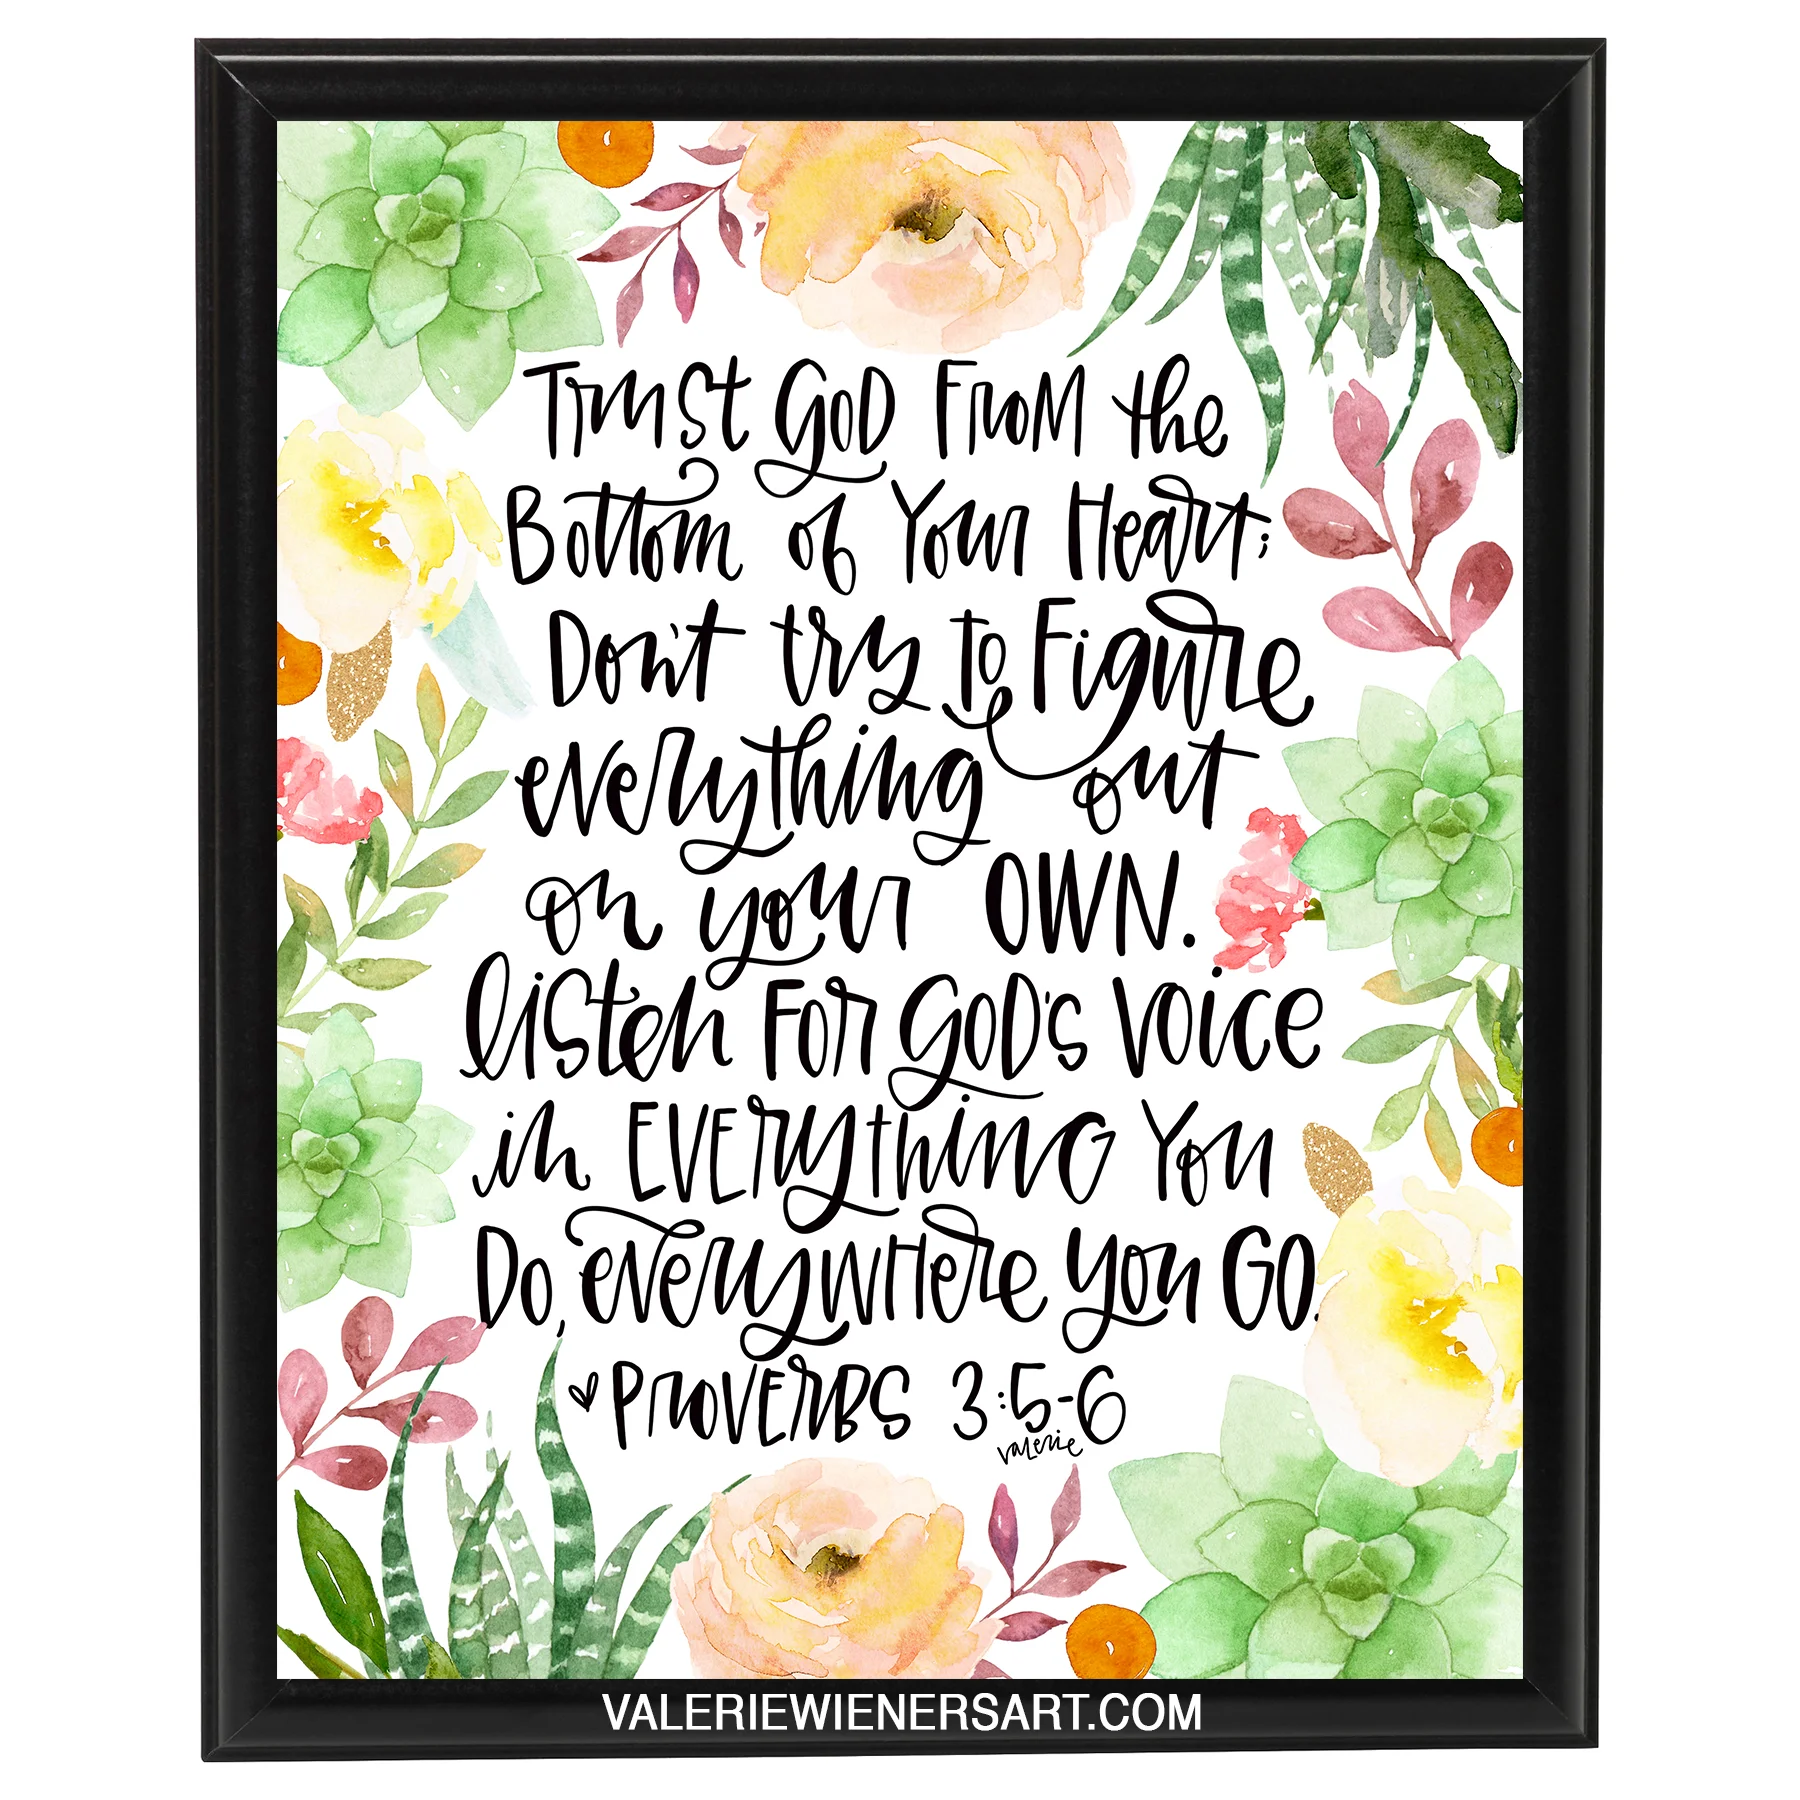 Trust God From the
Bottom of Your Heart;
Don't try to Figure
everything out
on your OWN.
Listen For God's Voice
in EVErything You
Do, everywhere you GO.
Proverbs 3:5-6
Valerie
VALERIEWIENERSART.COM